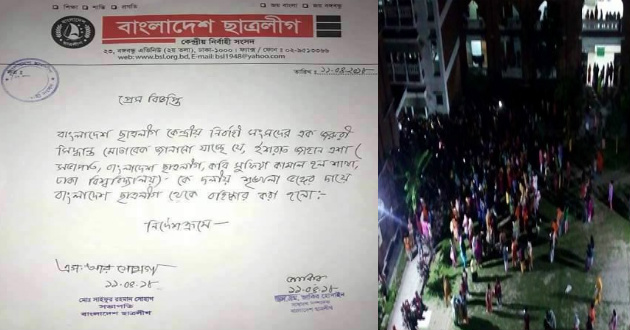 □ শিক্ষা □ শান্তি □ প্রগতি
□ জয় বাংলা □ জয় বঙ্গবন্ধু
বাংলাদেশ ছাত্রলীগ
কেন্দ্রীয় নির্বাহী সংসদ
২৩, বঙ্গবন্ধু এভিনিউ (২য় তলা), ঢাকা-১০০০। ফ্যাক্স / ফোন : ০২-৯৫১৩৩৬৬
web:www.bsl.org.bd, E-mail:bsl1948@yahoo.com
সূত্র :
তারিখ : ১১.০৪.২০১৮
প্রেস বিজ্ঞপ্তি
বাংলাদেশ ছাত্রলীগ কেন্দ্রীয় নির্বাহী সংসদের এক জরুরী
সিদ্ধান্ত মোতাবেক জানানো যাচ্ছে যে, ইশরাত জাহান এশা (
সভাপতি, বাংলাদেশ ছাত্রলীগ, কবি সুফিয়া কামাল হল শাখা,
ঢাকা বিশ্ববিদ্যালয়) - কে দলীয় শৃঙ্খলা ভঙ্গের দায়ে
বাংলাদেশ ছাত্রলীগ থেকে বহিষ্কার করা হলো:-
নির্দেশক্রমে—
১১.০৪.১৮
মোঃ সাইফুর রহমান সোহাগ
সভাপতি
বাংলাদেশ ছাত্রলীগ
জাকির
১১.০৪.১৮
এস.এম. জাকির হোসাইন
সাধারণ সম্পাদক
বাংলাদেশ ছাত্রলীগ